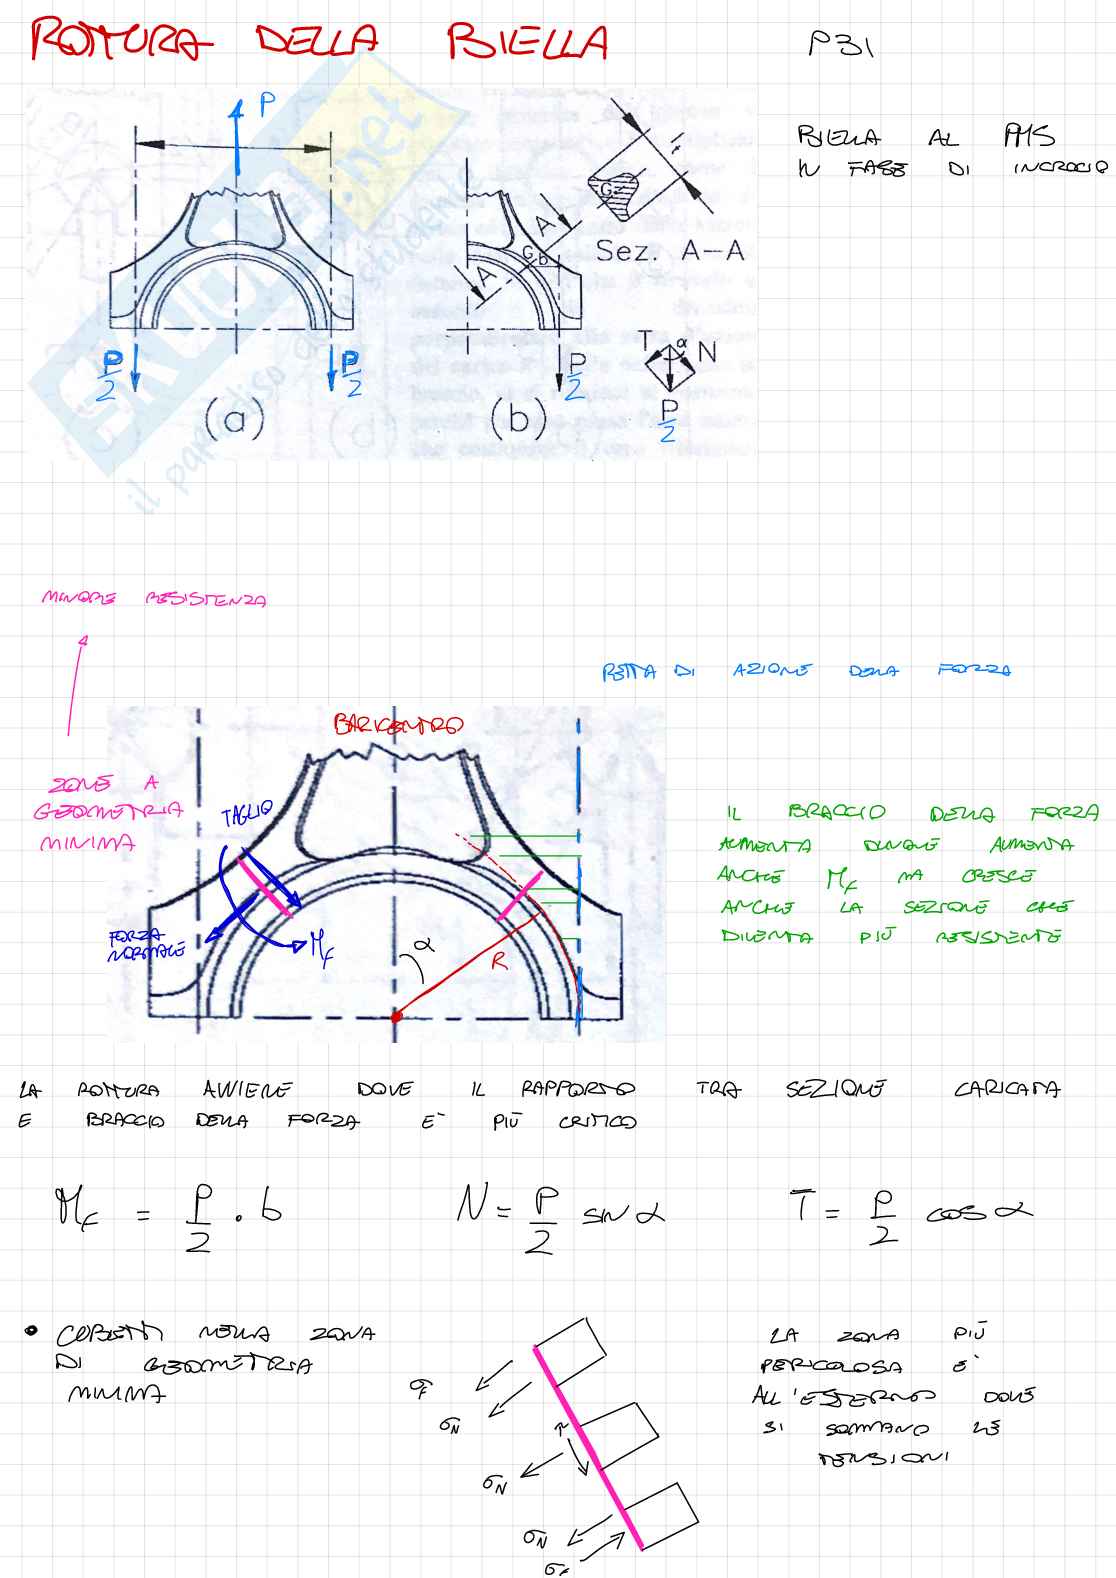 ROTTURA DELLA BIELLA
P31
BIELLA AL PMS
IN FASE DI INCROCIO
P
P/2
P/2
(a)
A
A
G
b
P/2
(b)
G
Sez. A-A
T α N
P/2
SKUOLA.net
il paradiso dello studente
MINORE RESISTENZA
RETTA DI AZIONE DELLA FORZA
BARICENTRO
ZONE A
GEOMETRIA
MINIMA
TAGLIO
FORZA
NORMALE
Mf
α
R
IL BRACCIO DELLA FORZA
AUMENTA DUNQUE AUMENTA
ANCHE Mf MA CRESCE
ANCHE LA SEZIONE CHE
DIVENTA PIÙ RESISTENTE
LA ROTTURA AVVIENE DOVE IL RAPPORTO TRA SEZIONE CARICATA
E BRACCIO DELLA FORZA E' PIÙ CRITICO
Mf = P/2 · b
N = P/2 sin α
T = P/2 cos α
• CUBETTI NELLA ZONA
DI GEOMETRIA
MINIMA
σF
σN
τ
σN
σN
σF
LA ZONA PIÙ
PERICOLOSA E'
ALL'ESTERNO DOVE
SI SOMMANO LE
TENSIONI